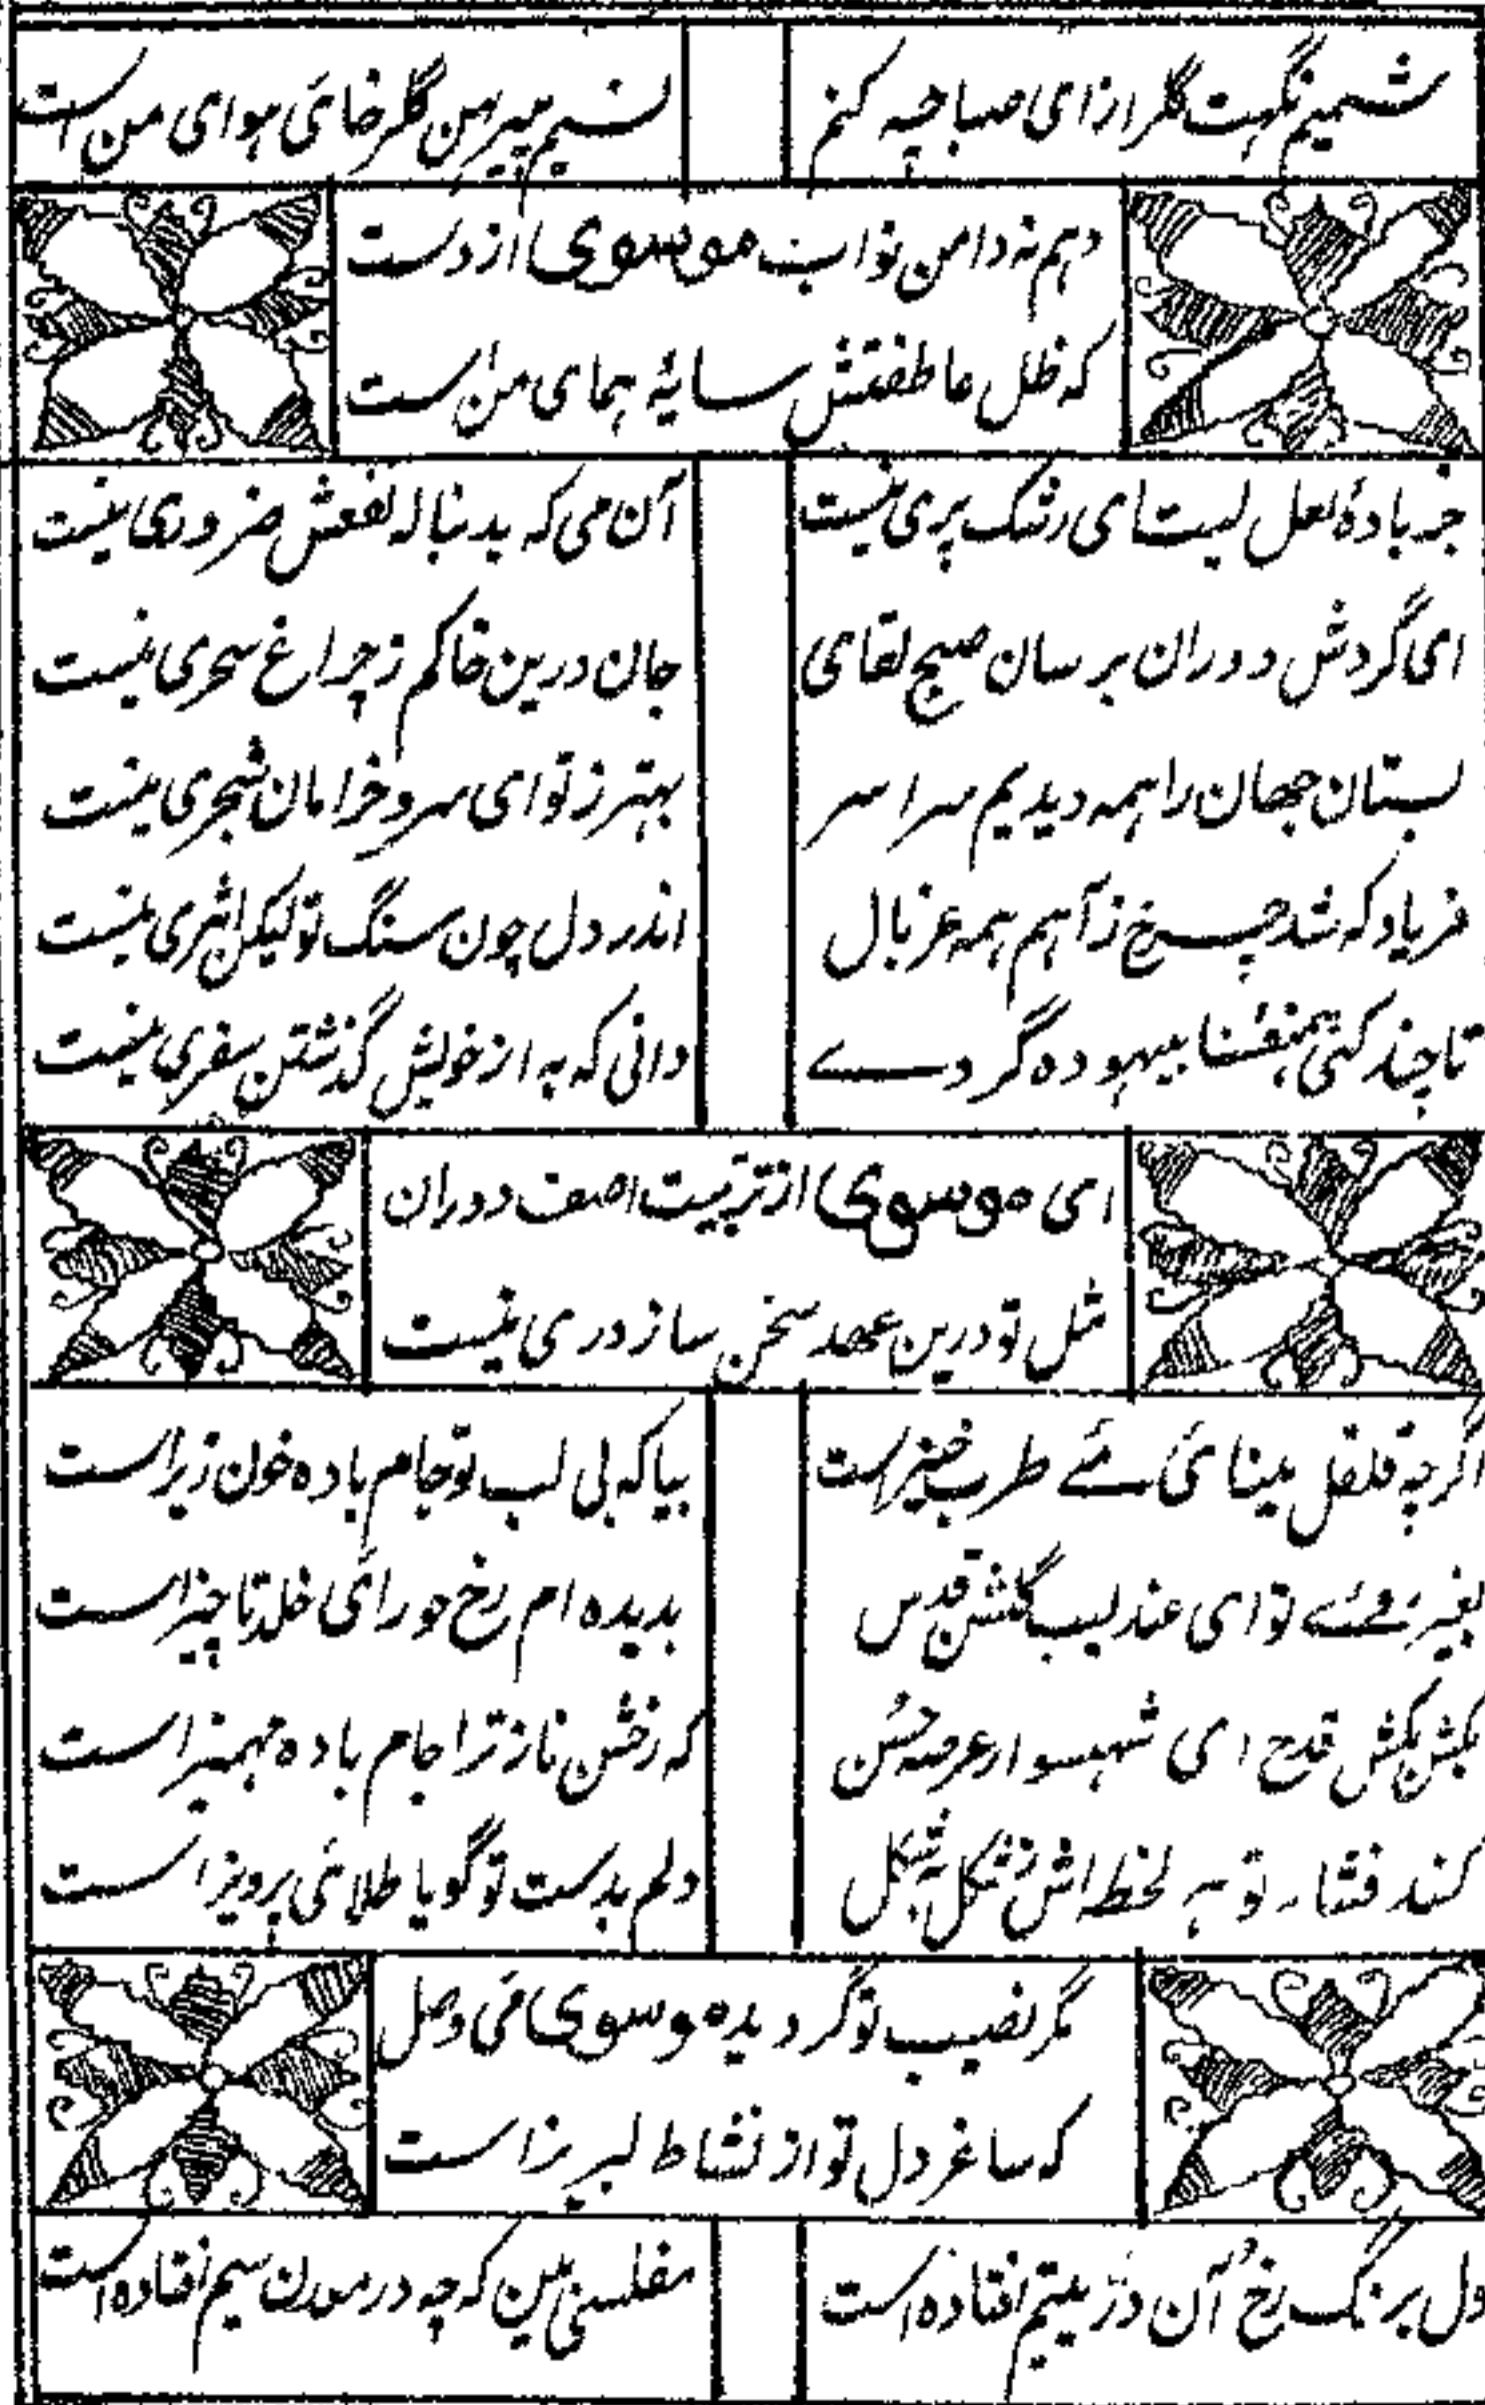 شمیم نگهت گلزار ازای صبا چه کنم
نسیم پیرهن گلرخائی هوای من است
دهم نه دامن نواب موسوی از دست
که ظل عاطفتش سایهٔ همای من است
جز بادهٔ لعل لبت ای رشک پری نیست
آن می که بدنباله نفعش ضروری نیست
ای گردش دوران برسان صبح لقای
جان درین خاکم ز چراغ سحری نیست
بستان جهان را همه دیدیم سراسر
بهتر ز تو ای سرو خرامان شجری نیست
فریاد که شد چرخ ز آهم همه غربال
اندر دل چون سنگ تو لیکن اثری نیست
تا چند کنی همنفسا بیهوده گردے
دانی که به از خویش گذشتن سفری نیست
ای موسوی از تربیت اصف دوران
مثل تو درین عهد سخن ساز دری نیست
اگرچه قلقل مینائی مئے طرب خیز است
بیا که بی لب تو جام باده خون ریز است
بغیر روئے تو ای عندلیب گلشن قدس
بدیده ام رخ حورائی خلد ناچیز است
بکش بکش قدح ای شهسوار عرصه حُسن
که رخش ناز ترا جام باده مهمیز است
کند فشار تو هر لحظه اش ز شکل به شکل
دلم بدست تو گویا طلائی پرویز است
مگر نصیب تو گردیده موسوی می وصل
که ساغر دل تو از نشاط لبریز است
دل برنگ رخ آن دُرّ یتیم افتاده است
مفلسی بین که چه در معدن سیم افتاده است